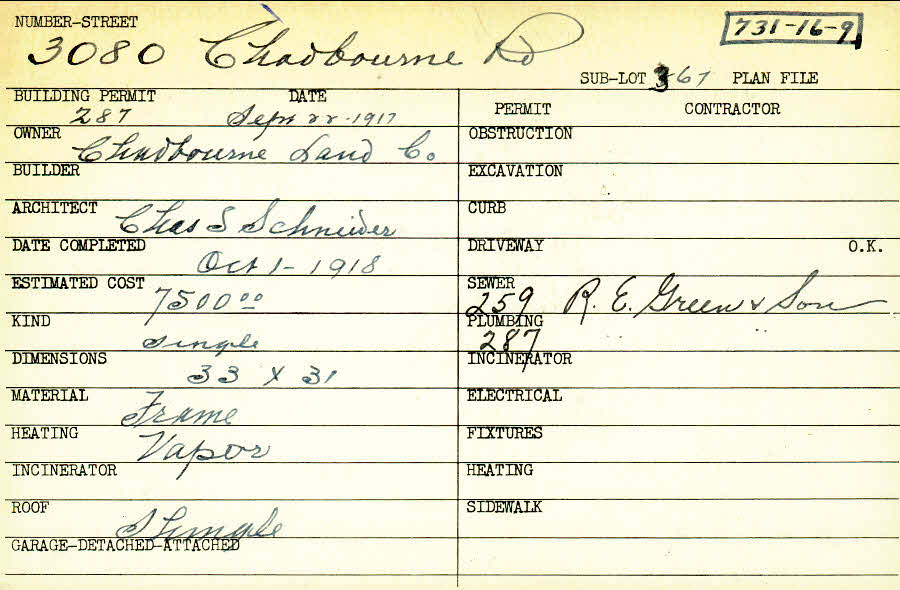 NUMBER-STREET
731-16-9
3080 Chadbourne Rd
SUB-LOT 367 PLAN FILE
BUILDING PERMIT DATE
287 Sept 22-1917
OWNER
Chadbourne Land Co.
BUILDER
ARCHITECT
Chas S Schneider
DATE COMPLETED
Oct 1-1918
ESTIMATED COST
7500 00
KIND
Single
DIMENSIONS
33 X 31
MATERIAL
Frame
HEATING
Vapor
INCINERATOR
ROOF
Shingle
GARAGE-DETACHED-ATTACHED
PERMIT CONTRACTOR
OBSTRUCTION
EXCAVATION
CURB
DRIVEWAY O.K.
SEWER
259 R. E. Green & Son
PLUMBING
287
INCINERATOR
ELECTRICAL
FIXTURES
HEATING
SIDEWALK